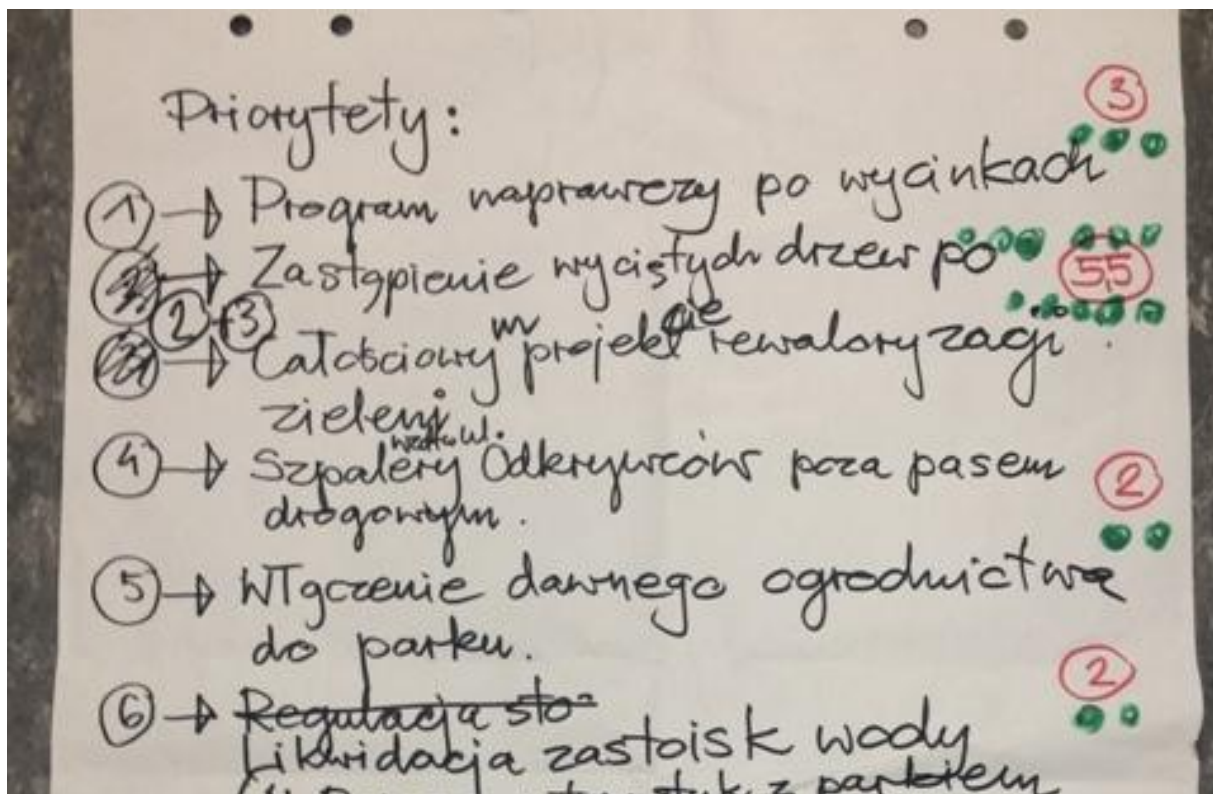 Priorytety:
3
1 → Program naprawczy po wycinkach
Zastąpienie wyciętych drzew po
5,5
2+3
m cie
Całościowy projekt rewaloryzacji
zieleni
wzdłuż ul.
4 → Szpalery Odkrywców poza pasem
2
drogowym.
5 → Włączenie dawnego ogrodnictwa
do parku.
2
6 → Regulacja sto-
Likwidacja zastoisk wody
z parkiem